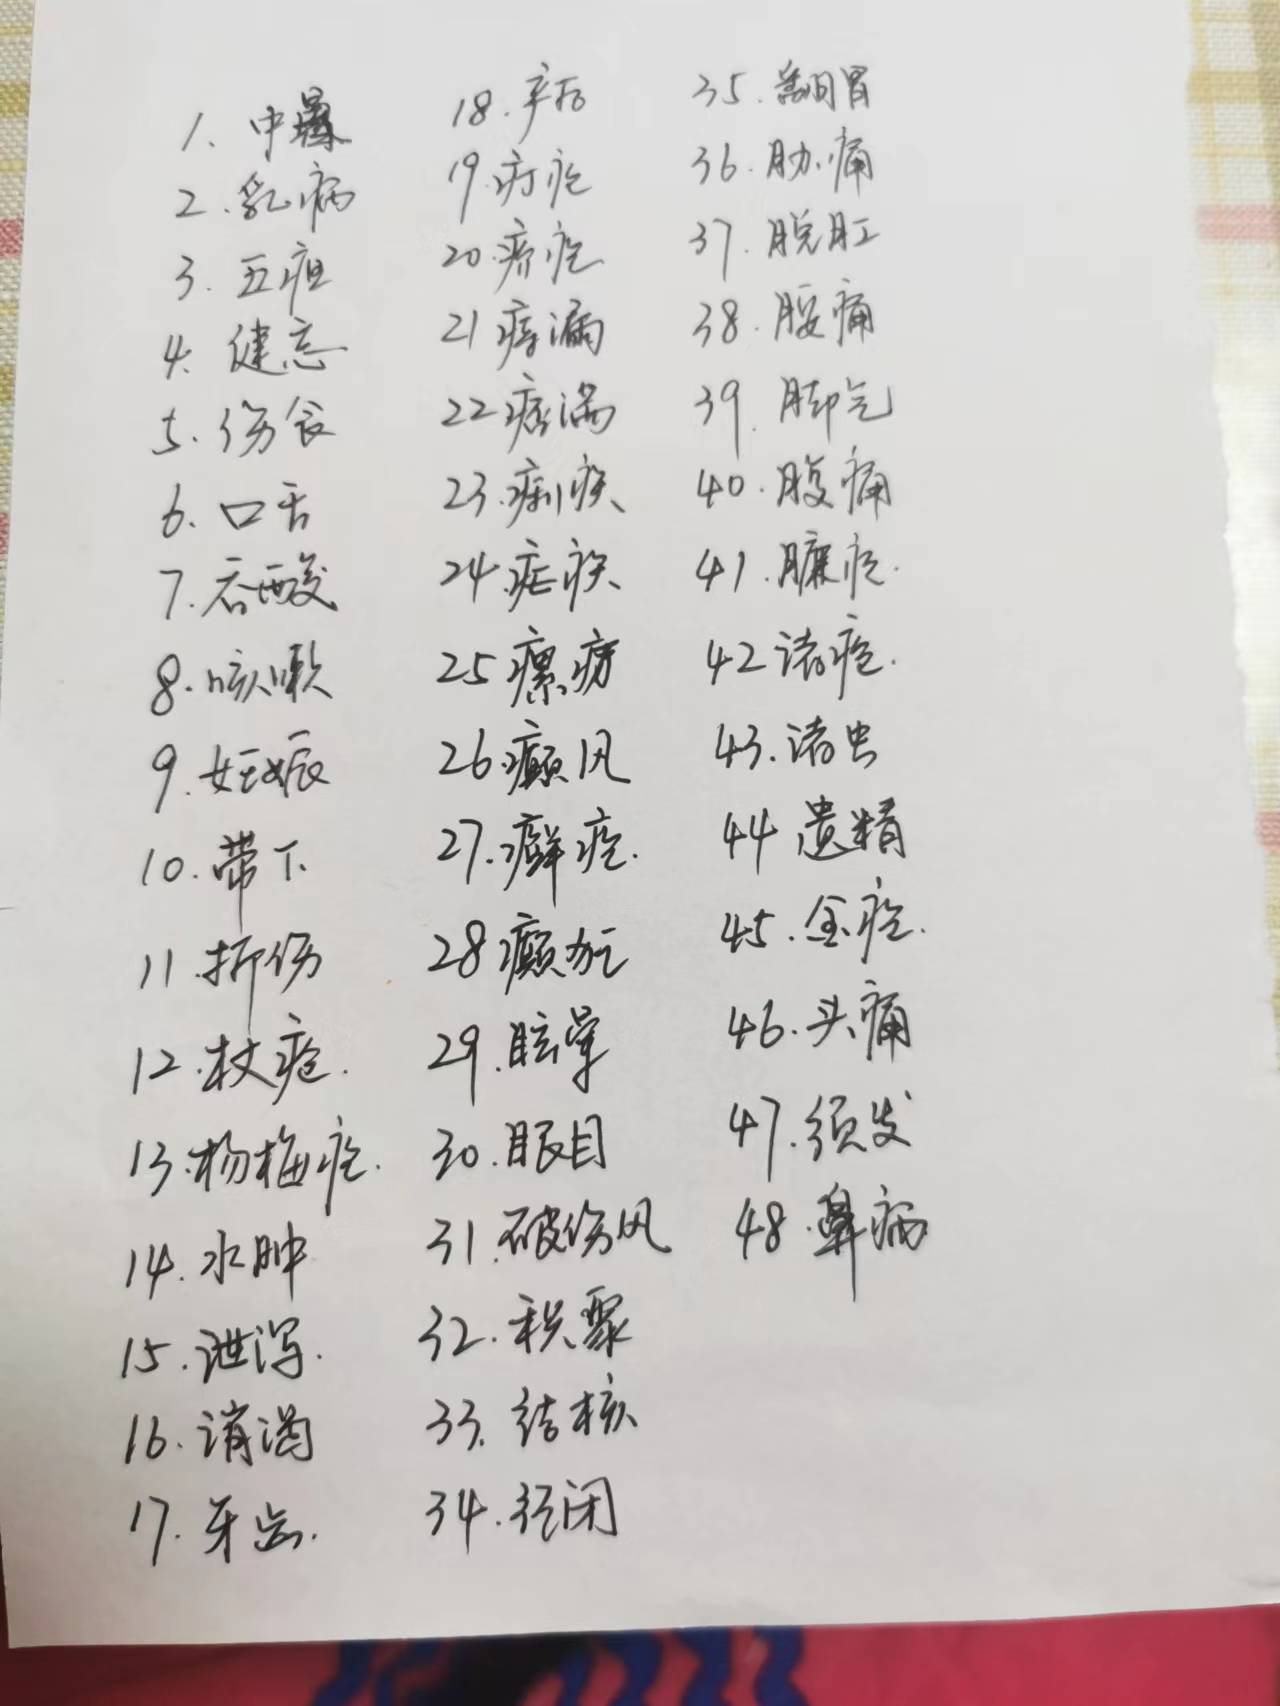 1. 中暑
2. 乳病
3. 五疸
4. 健忘
5. 伤食
6. 口舌
7. 吞酸
8. 咳嗽
9. 妊娠
10. 带下
11. 折伤
12. 杖疮.
13. 杨梅疮.
14. 水肿
15. 泄泻.
16. 消渴
17. 牙齿.
18. 产后
19. 疔疮
20. 疥疮
21 痔漏
22 痞满
23. 痢疾
24. 疟疾
25 瘰疬
26. 癜风
27. 癣疮.
28 癫狂
29. 眩晕
30. 眼目
31. 破伤风
32. 积聚
33. 结核
34. 经闭
35. 翻胃
36. 胁痛
37. 脱肛
38. 腰痛
39. 脚气
40. 腹痛
41. 臁疮.
42 诸疮.
43. 诸虫
44 遗精
45. 金疮.
46. 头痛
47. 须发
48. 鼻病